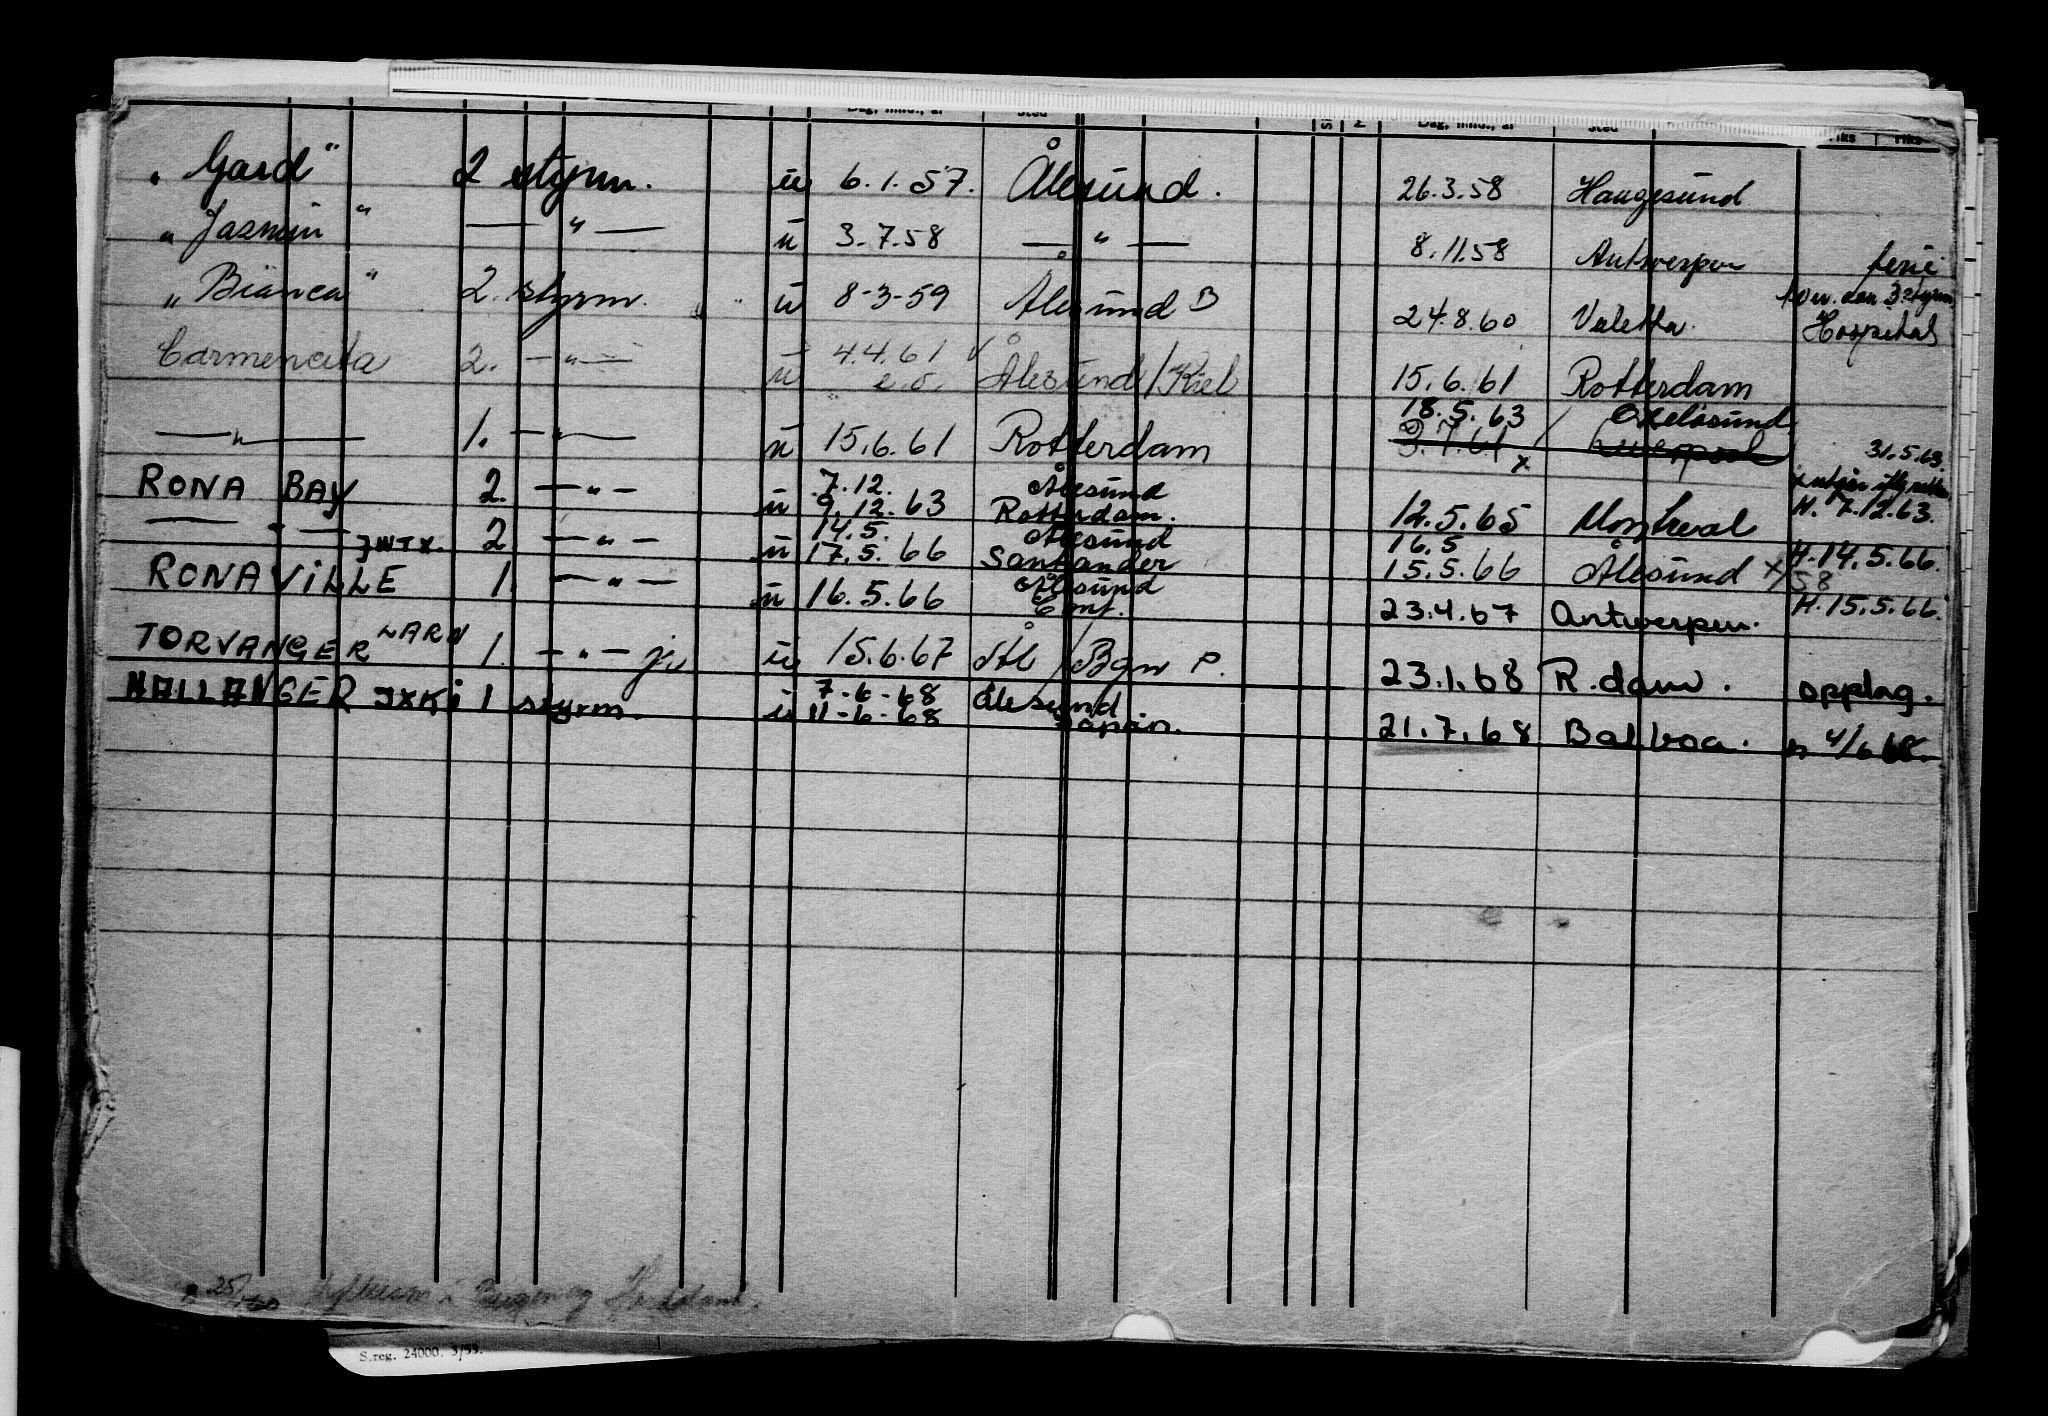 Dag, mnd., år Sted Dag, mnd., år Sted
„ Gard " 2 styrm. u 6.1.57. Ålesund. 26.3.58 Haugesund
„ Jasmin " — " — u 3.7.58 — " — 8.11.58 Antwerpen ferie
„ Bianca " 2. styrm. u 8-3-59 Ålesund B 24.8.60 Valetta. Hospital
Carmencita 2. — " — u 4.4.61 Ålesund / Kiel 15.6.61 Rotterdam
— " — 1. — " — u 15.6.61 Rotterdam 18.5.63 Oxelösund 31.5.63.
RONA BAY 2. — " — u 7.12. 9.12.63 Ålesund Rotterdam. 12.5.65 Montreal H. 7.12.63.
— " — JWTX. 2 — " — u 14.5. 17.5.66 Ålesund Santander 16.5 15.5.66 Ålesund x/58 H. 14.5.66.
RONAVILLE 1. — " — u 16.5.66 Ålesund 23.4.67 Antwerpen. H. 15.5.66.
TORVANGER LARN 1. — " — jr u 15.6.67 Ål / Bgn P. 23.1.68 R.dam. opplag.
HALLANGER JXKI 1 styrm. u 7-6-68 11-6-68 Ålesund Japan. 21.7.68 Balboa. 4/6 68.
S.reg. 24000. 3/53.